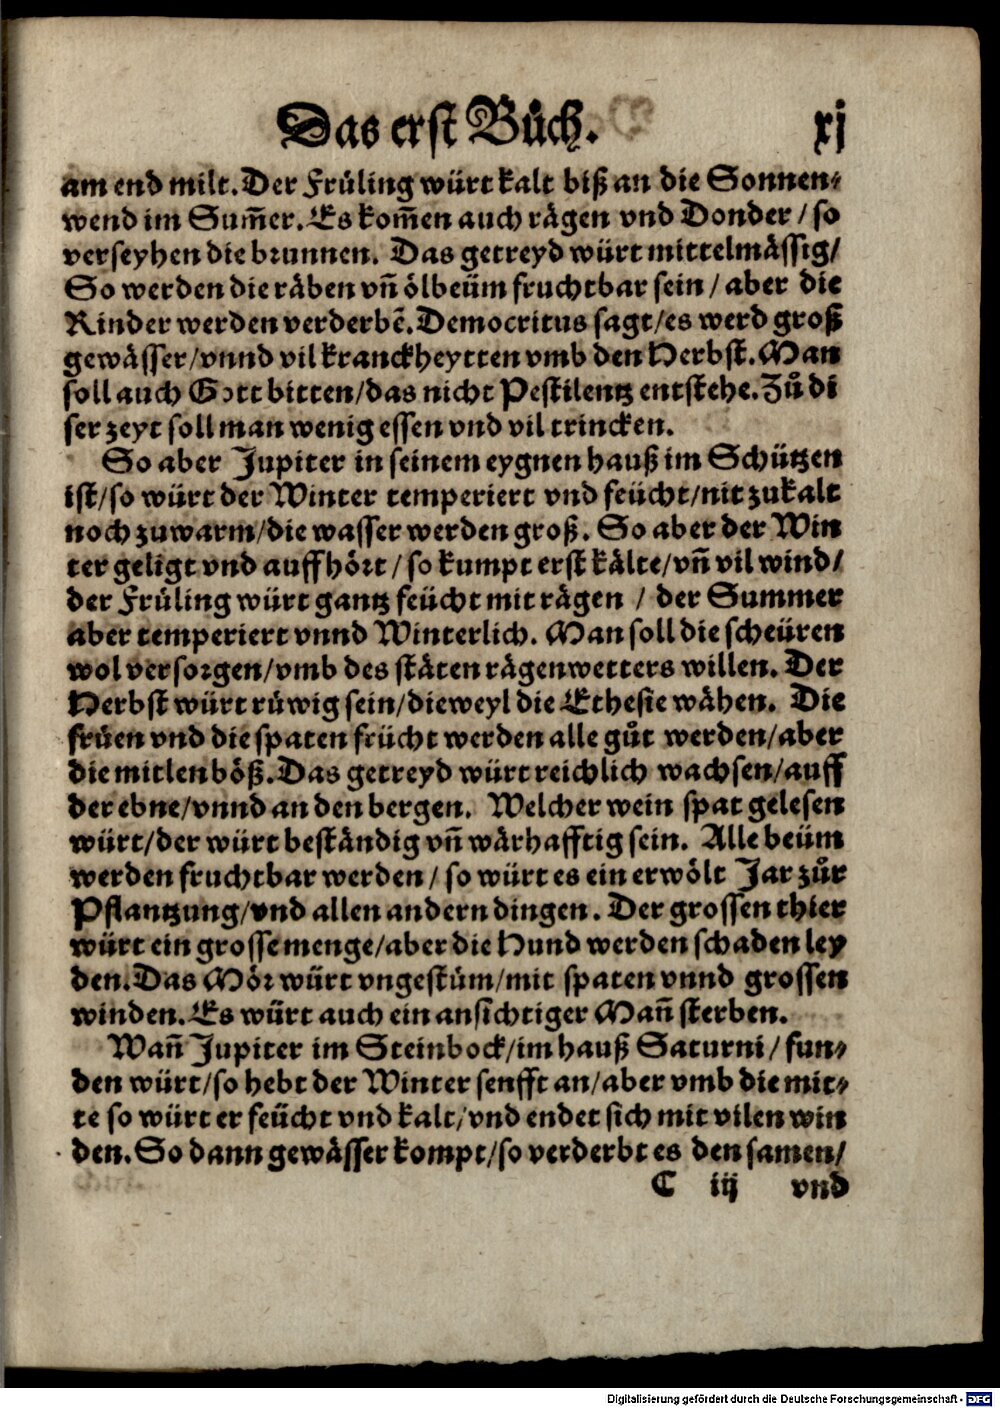 Das erst Bůch. xj
am end milt. Der Früling würt kalt biß an die Sonnen⸗
wend im Sum̃er. Es kom̃en auch rägen vnd Donder / so
verseyhen die brunnen. Das getreyd würt mittelmässig/
So werden die räben vñ ölbeüm fruchtbar sein / aber die
Rinder werden verderbẽ. Democritus sagt/es werd groß
gewässer/vnnd vil kranckheytten vmb den Herbst. Man
soll auch Gott bitten/das nicht Pestilentz entstehe. Zů di
ser zeyt soll man wenig essen vnd vil trincken.
So aber Jupiter in seinem eygnen hauß im Schützen
ist/so würt der Winter temperiert vnd feücht/nit zukalt
noch zuwarm/die wasser werden groß. So aber der Win
ter geligt vnd auffhört / so kumpt erst kälte/vñ vil wind/
der Früling würt gantz feücht mit rägen / der Summer
aber temperiert vnnd Winterlich. Man soll die scheüren
wol versorgen/vmb des stäten rägenwetters willen. Der
Herbst würt rüwig sein/dieweyl die Ethesie wähen. Die
früen vnd die spaten frücht werden alle gůt werden/aber
die mitlen böß. Das getreyd würt reichlich wachsen/auff
der ebne/vnnd an den bergen. Welcher wein spat gelesen
würt/der würt beständig vñ wärhafftig sein. Alle beüm
werden fruchtbar werden / so würt es ein erwölt Jar zůr
Pflantzung/vnd allen andern dingen. Der grossen thier
würt ein grosse menge/aber die Hund werden schaden ley
den. Das Mör würt vngestüm/mit spaten vnnd grossen
winden. Es würt auch ein ansichtiger Mañ sterben.
Wañ Jupiter im Steinbock/im hauß Saturni / fun⸗
den würt/so hebt der Winter senfft an/aber vmb die mit⸗
te so würt er feücht vnd kalt/vnd endet sich mit vilen win
den. So dann gewässer kompt/so verderbt es den samen/
C iij vnd
Digitalisierung gefördert durch die Deutsche Forschungsgemeinschaft - DFG